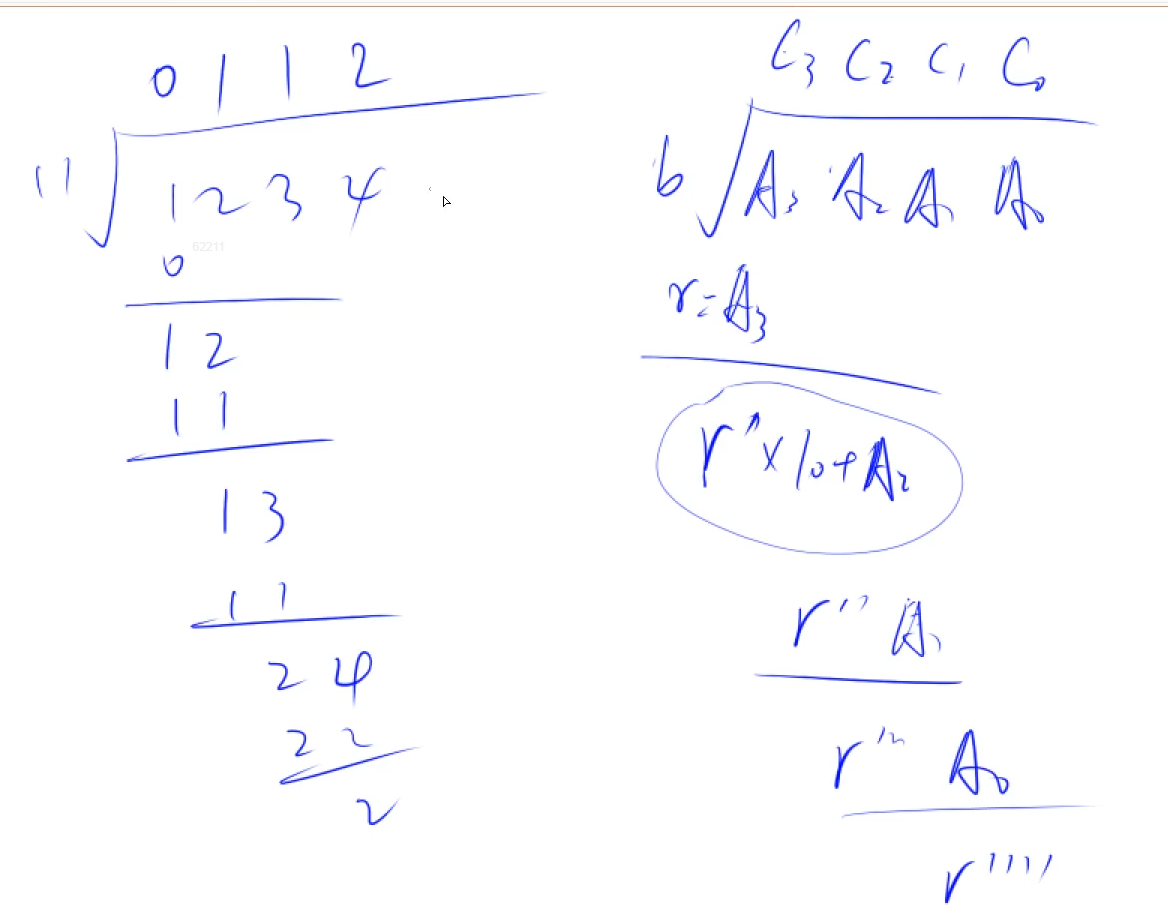 0 1 1 2
11 1 2 3 4
0
62211
1 2
1 1
1 3
1 1
2 4
2 2
2
C₃ C₂ C₁ C₀
b A₃ A₂ A₁ A₀
r = A₃
r' × 10 + A₂
r'' A₁
r''' A₀
r''''